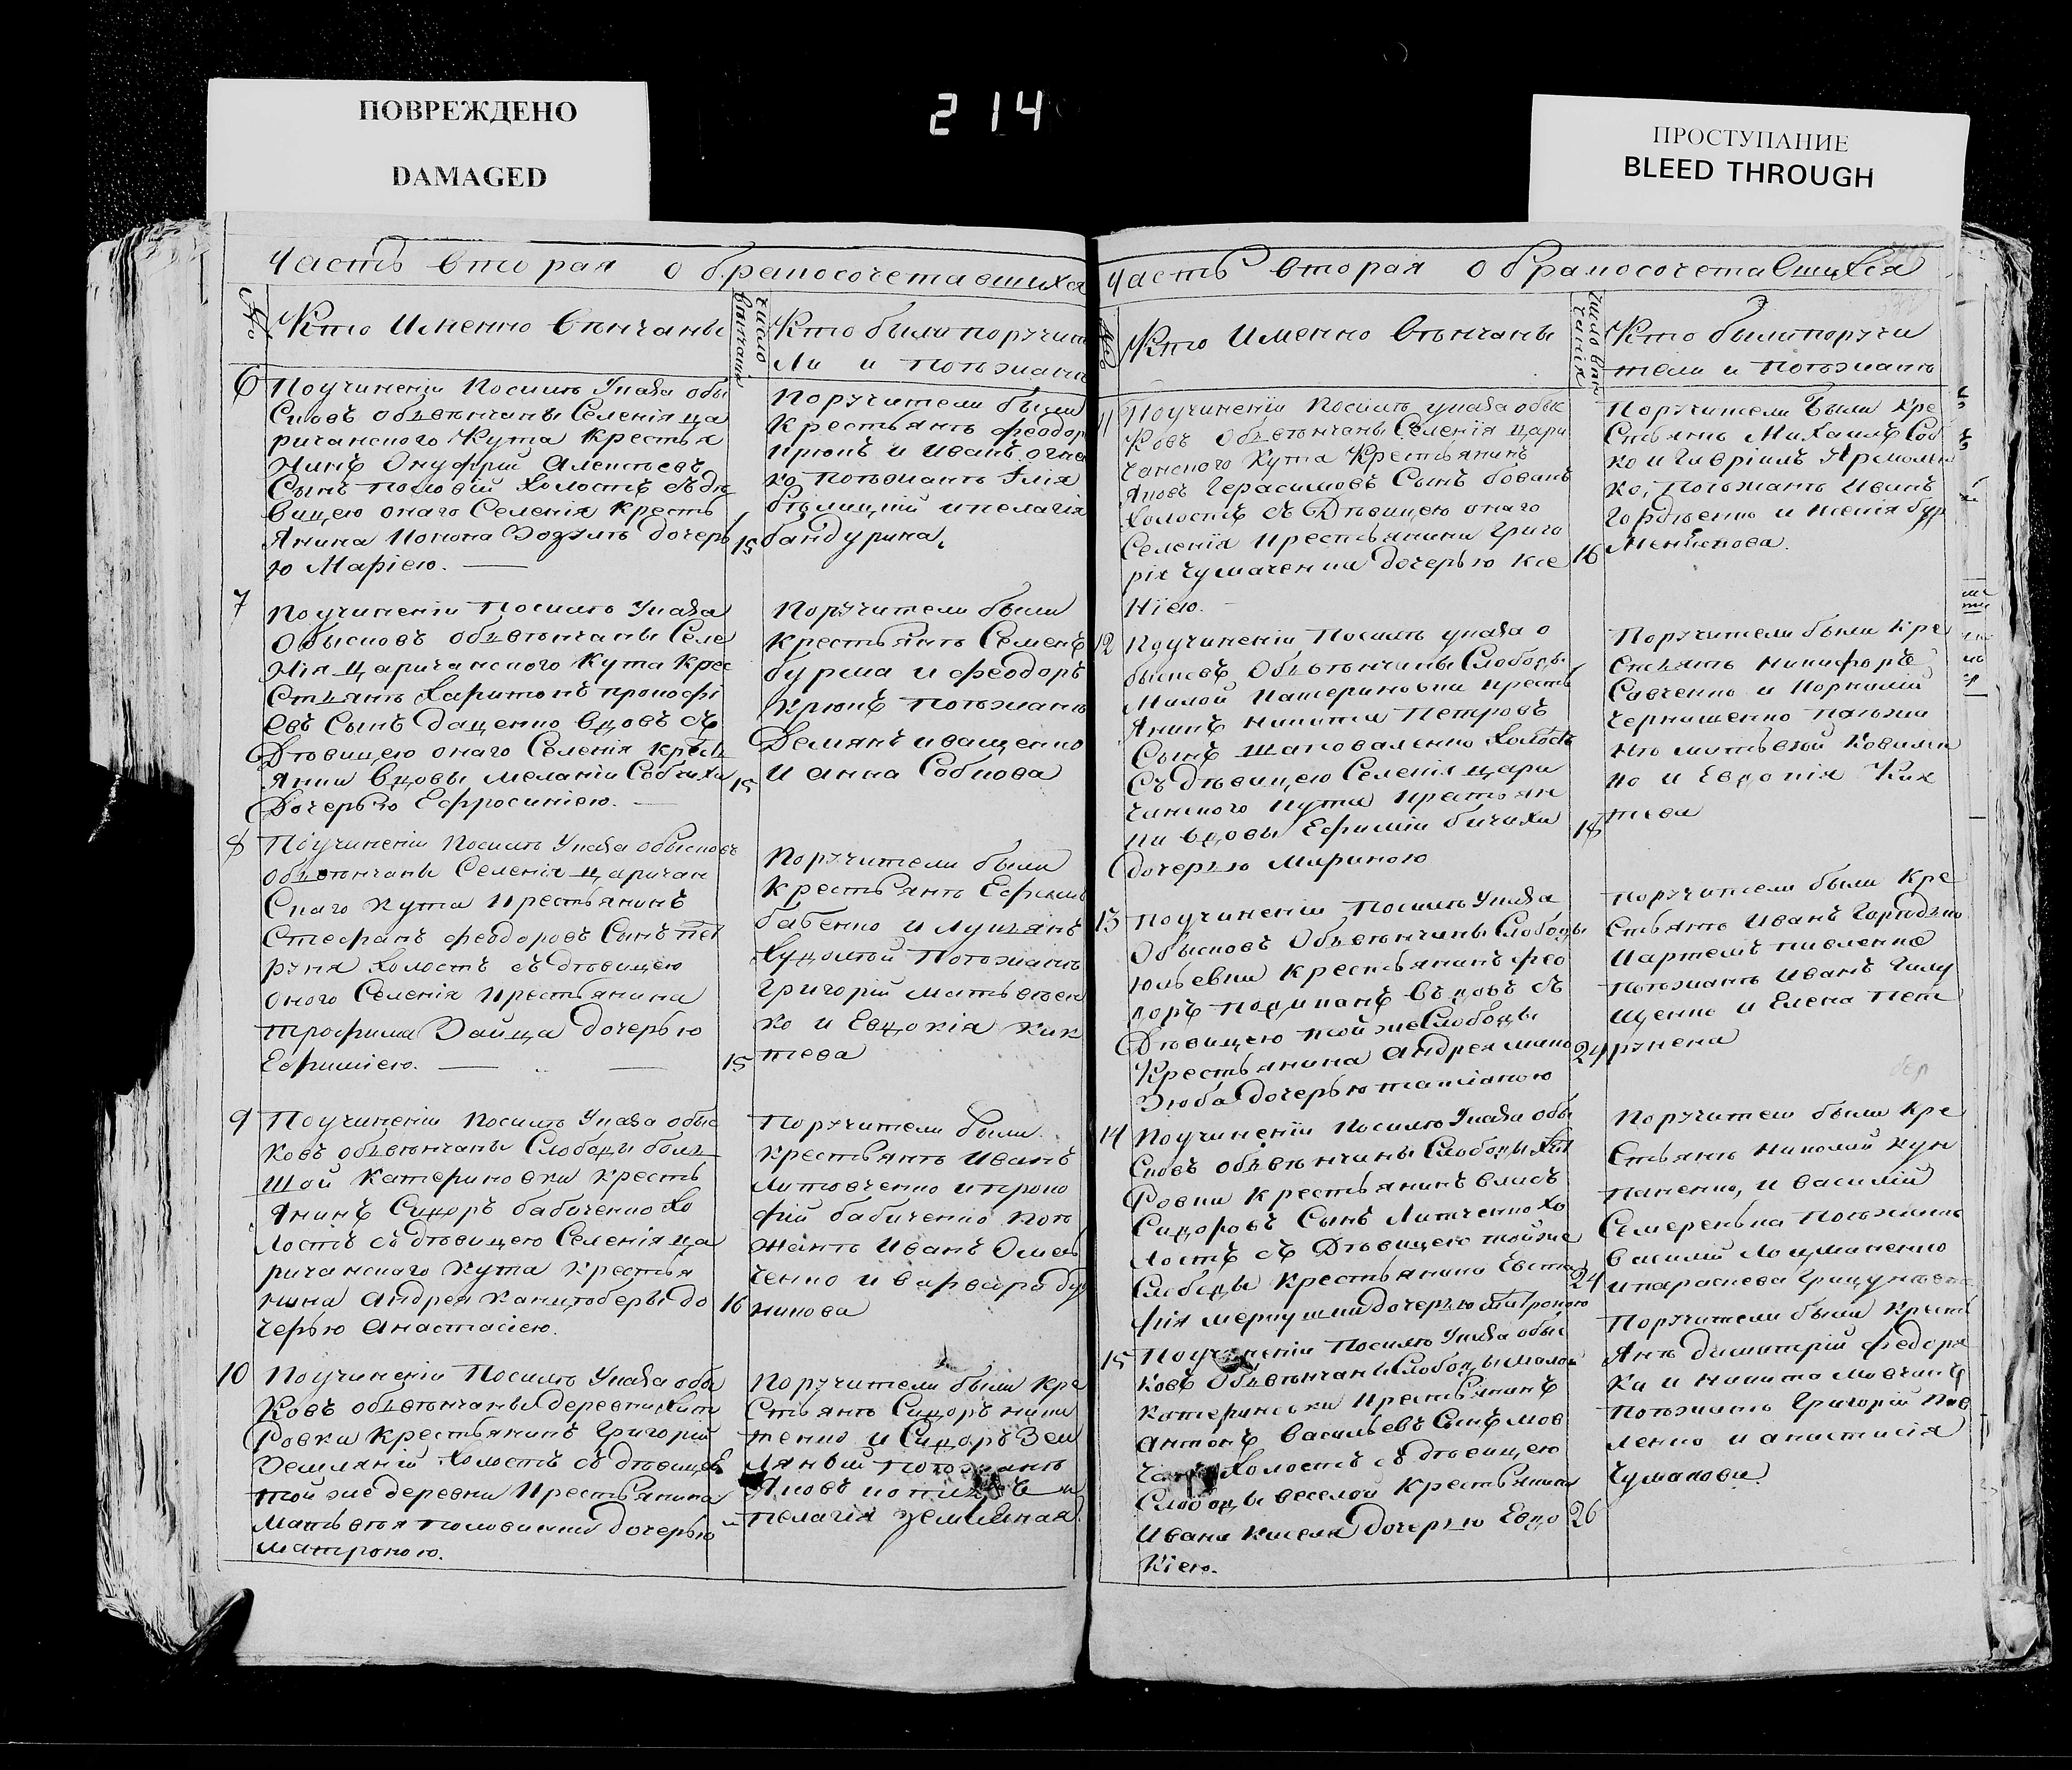 ПОВРЕЖДЕНО
DAMAGED
214
ПРОСТУПАНИЕ
BLEED THROUGH
Часть вторая о бракосочетавшихся
№
Кто Именно Вѣнчаны
число вѣнчанія
Кто были поручит
ли и поѣзжанѣ
6
Поучиненіи Посилѣ Указа обы
Сковъ обвѣнчаны Селенія ца
ричанского Кута Крестья
Нинъ Онуфрій Алексѣевъ
Сынъ Половій холостъ съ дѣ
вицею онаго Селенія Кресть
Янина Дочерь
ю Маріею.
15
Поручители были
Крестьянѣ Феодор
Крюкъ и Иванъ
ко Поѣзжанѣ Илія
и пелагія
бандурина,
7
Поучиненіи Посилѣ Указа
Обысковъ обвѣнчаны Селе
Нія Царичанского Кута Крес
Стьянъ Харитонъ прокофі
Евъ Сынъ Даценко вдовъ съ
Дѣвицею онаго Селенія Кресть
Янки Вдовы Меланіи
Дочерью Ефросиніею.
15
Поручители были
Крестьянѣ Семенъ
бурма и феодоръ
Крюкъ Поѣзжанѣ
Демянъ иващенко
и анна Собкова
8
Поучиненіи Посилѣ Указа обысковъ
Обвѣнчаны Селенія Царичан
Скаго Кута Крестьянинъ
Стефанъ феодоровъ Сынъ пет
руня холостъ съ дѣвицею
оного Селенія Крестьянина
трофима Зайца Дочерью
Ефиміею.
15
Поручители были
Крестьянѣ Ефимъ
бабенко и Лукъянъ
Худолѣй Поѣзжанѣ
Григорій Матвѣен
ко и Евдокія Ких
тева
9
Поучиненіи Посилѣ Указа обыс
Ковъ обвѣнчаны Слободы боль
шой Катериновки Кресть
Янинъ Сидоръ бабиченко Хо
лостъ съ дѣвицею Селенія ца
ричанскаго Кута Крестья
нина Андрея Канцобери до
черью Анастасіею.
16
Поручители были
Крестьянѣ Иванъ
Литовченко и проко
фій бабиченко Поѣ
Жанѣ Иванъ Омель
ченко и варвара
никова
10
Поучиненіи Посилѣ Указа обы
Ковъ обвѣнчаны деревни Хит
Ровки Крестьянинъ Григорій
Земляній Холостъ съ дѣвицею
той же деревни Крестьянина
Матвѣя половинки дочерью
Матроною.
Поручители были Кре
Стьянѣ Сидоръ ники
тенко и Сидоръ Зем
Ляный Поѣзжанѣ
Яковъ
пелагія землѣная
Часть вторая о бракосочетавшихся
№
Кто Именно Вѣнчаны
число вѣнчанія
Кто были поручи
тели и поѣзжанѣ
11
Поучиненіи Посилѣ указа обыс
Ковъ Обвѣнчаны Селенія Цари
чанского Кута Крестьянинъ
Яковъ Герасимовъ Сынъ бованъ
Холостъ съ Дѣвицею онаго
Селенія Крестьянина Григо
рія Чумаченка дочерью Ксе
ніею.
16
Поручители были Кре
Стьянѣ Михаилъ Соб
ко и Гавріилъ Ярмолен
ко, Поѣзжанѣ Иванъ
Гордѣенко и
12
Поучиненіи Посилѣ указа о
бысковъ Обвѣнчаны Слободы
Малой Катериновки Кресть
Янинъ Никита Петровъ
Сынъ Шаповаленко Холостъ
Съ дѣвицею Селенія Цари
чанского Кута Крестьян
ки вдовы Ефиміи бичихи
дочерью Мариною
18
Поручители были Кре
Стьянѣ Никифоръ
Савченко и Корнилій
Чернишенко Поѣзжа
нѣ Матвѣй
ко и Евдокія Ких
тева
13
Поучиненіи Посилѣ Указа
Обысковъ Обвѣнчаны Слободы
Юльевки Крестьянинъ фео
доръ въдовъ съ
Дѣвицею той же Слободы
Крестьянина Андрея
Дочерью татіаною
24
Поручители были Кре
Стьянѣ Иванъ
павленко
Поѣзжанѣ Иванъ
щенко и Елена пет
рунена
14
Поучиненіи Посилѣ Указа обы
Сковъ обвѣнчаны Слободы Хит
Ровки Крестьянинъ
Сидоровъ Сынъ Литченко Хо
лостъ съ Дѣвицею той же
Слободы Крестьянина Евста
фія дочерью Матроною
24
Поручители были Кре
Стьянѣ Николай
паненко, и василій
Семеренька Поѣзжанѣ
василій Лоцманенко
и параскева
15
Поучиненіи Посилѣ Указа обыс
Ковъ Обвѣнчаны Слободы Малой
Катериновки Крестьянинъ
Антонъ Васильевъ Сынъ мов
Холостъ съ дѣвицею
Слободы веселой Крестьянина
Ивана Киселя Дочерью Евдо
Кіею.
26
Поручители были Кресть
Янѣ Димитрій федоря
ка и Никита Мовчанъ
Поѣзжанѣ Григорій Пав
ленко и анастасія
Чумакова